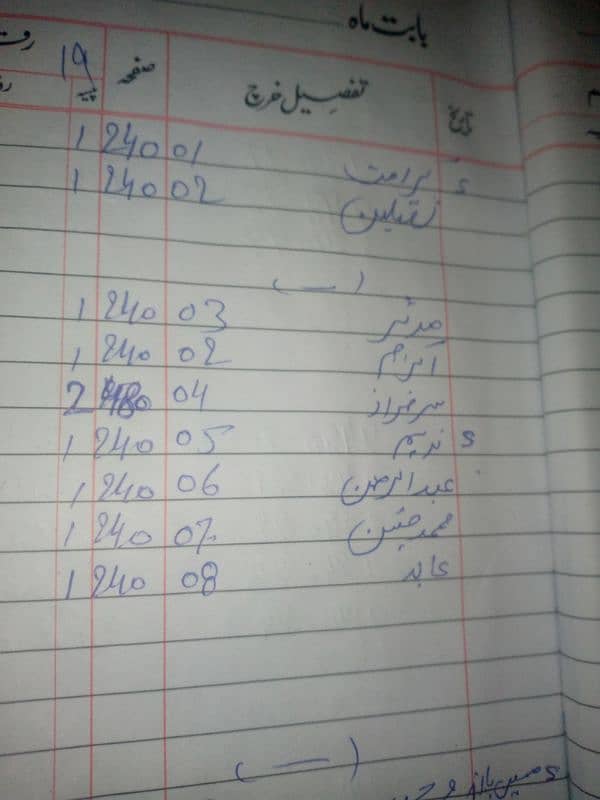 بابت ماہ
تاریخ تفصیل خرچ صفحہ 19
s کرامت 01 240 1
ثقلین 02 240 1
( — )
مدثر 03 240 1
اکرام 02 240 1
سرفراز 04 480 2
s ندیم 05 240 1
عبدالرحمن 06 240 1
محمد حسن 07 240 1
عابد 08 240 1
( — )